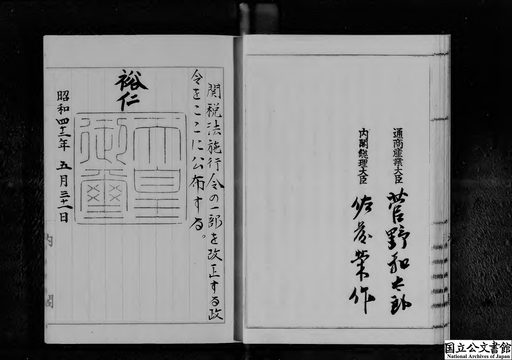 通商産業大臣
菅野和太郎
内閣総理大臣
佐藤榮作
関税法施行令の一部を改正する政
令をここに公布する。
裕仁
天皇
御璽
昭和四十二年 五月三十一日
内閣
国立公文書館
National Archives of Japan